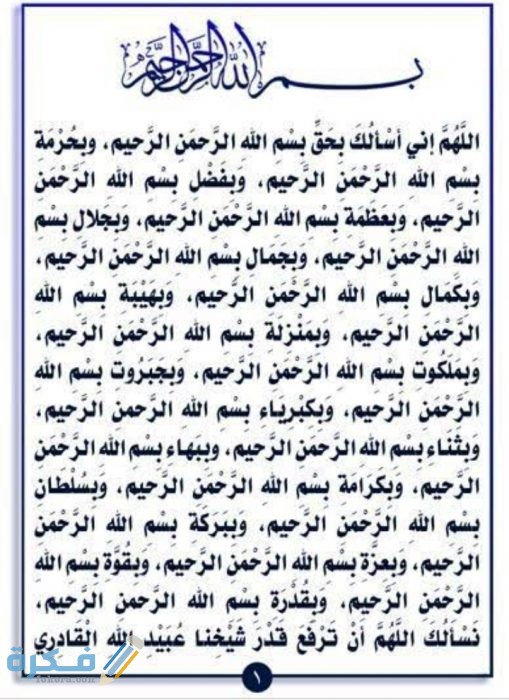 بسم الله الرحمن الرحيم
اللَّهُمَّ إني أسْألُكَ بِحَقِّ بِسْمِ اللهِ الرَّحمَنِ الرَّحيم، وبِحُرْمَةِ
بِسْمِ اللهِ الرَّحْمَنِ الرَّحيم، وَبِفَضْلِ بِسْمِ الله الرَّحْمَنِ
الرَّحيم، وَبِعَظَمَة بِسْمِ الله الرَّحْمَنِ الرَّحيم، وَبِجَلال بِسْمِ
الله الرَّحْمَنِ الرَّحيم، وَبِجَمَالِ بِسْمِ اللهِ الرَّحْمَنِ الرَّحيم،
وَبِكَمَالِ بِسْمِ اللهِ الرَّحْمَنِ الرَّحيم، وَبِهَيْبَةِ بِسْمِ اللهِ
الرَّحْمَنِ الرَّحيم، وَبِمَنْزِلَةِ بِسْمِ اللهِ الرَّحْمَنِ الرَّحيم،
وَبِمَلَكُوتِ بِسْمِ اللهِ الرَّحْمَنِ الرَّحيم، وَبِجَبَرُوت بِسْمِ الله
الرَّحْمَنِ الرَّحيم، وَبِكِبْرِيَاءِ بِسْمِ اللهِ الرَّحمنِ الرَّحيم،
وَبِثَنَاءِ بِسْمِ الله الرَّحمنِ الرَّحيم، وَبِبهاءِ بِسْمِ الله الرَّحْمَنِ
الرَّحيم، وَبِكَرَامَة بِسْمِ اللهِ الرَّحْمَنِ الرَّحيم، وَبِسُلْطَان
بِسْمِ اللهِ الرَّحْمَنِ الرَّحيم، وَبِبَرَكَة بِسْمِ اللهِ الرَّحْمَنِ
الرَّحيم، وَبِعِزة بِسْمِ الله الرَّحْمَنِ الرَّحيم، وَبِقُوَّة بِسْمِ الله
الرَّحْمَنِ الرَّحيم، وَبِقُدْرة بِسْمِ الله الرحمنِ الرحيمِ،
نَسْألُكَ اللهُمَ أنْ تَرْفَعَ قَدْرَ شَيْخِنا عُبَيْدِ الله الْقَادِري
١
فكرة
fekera.com